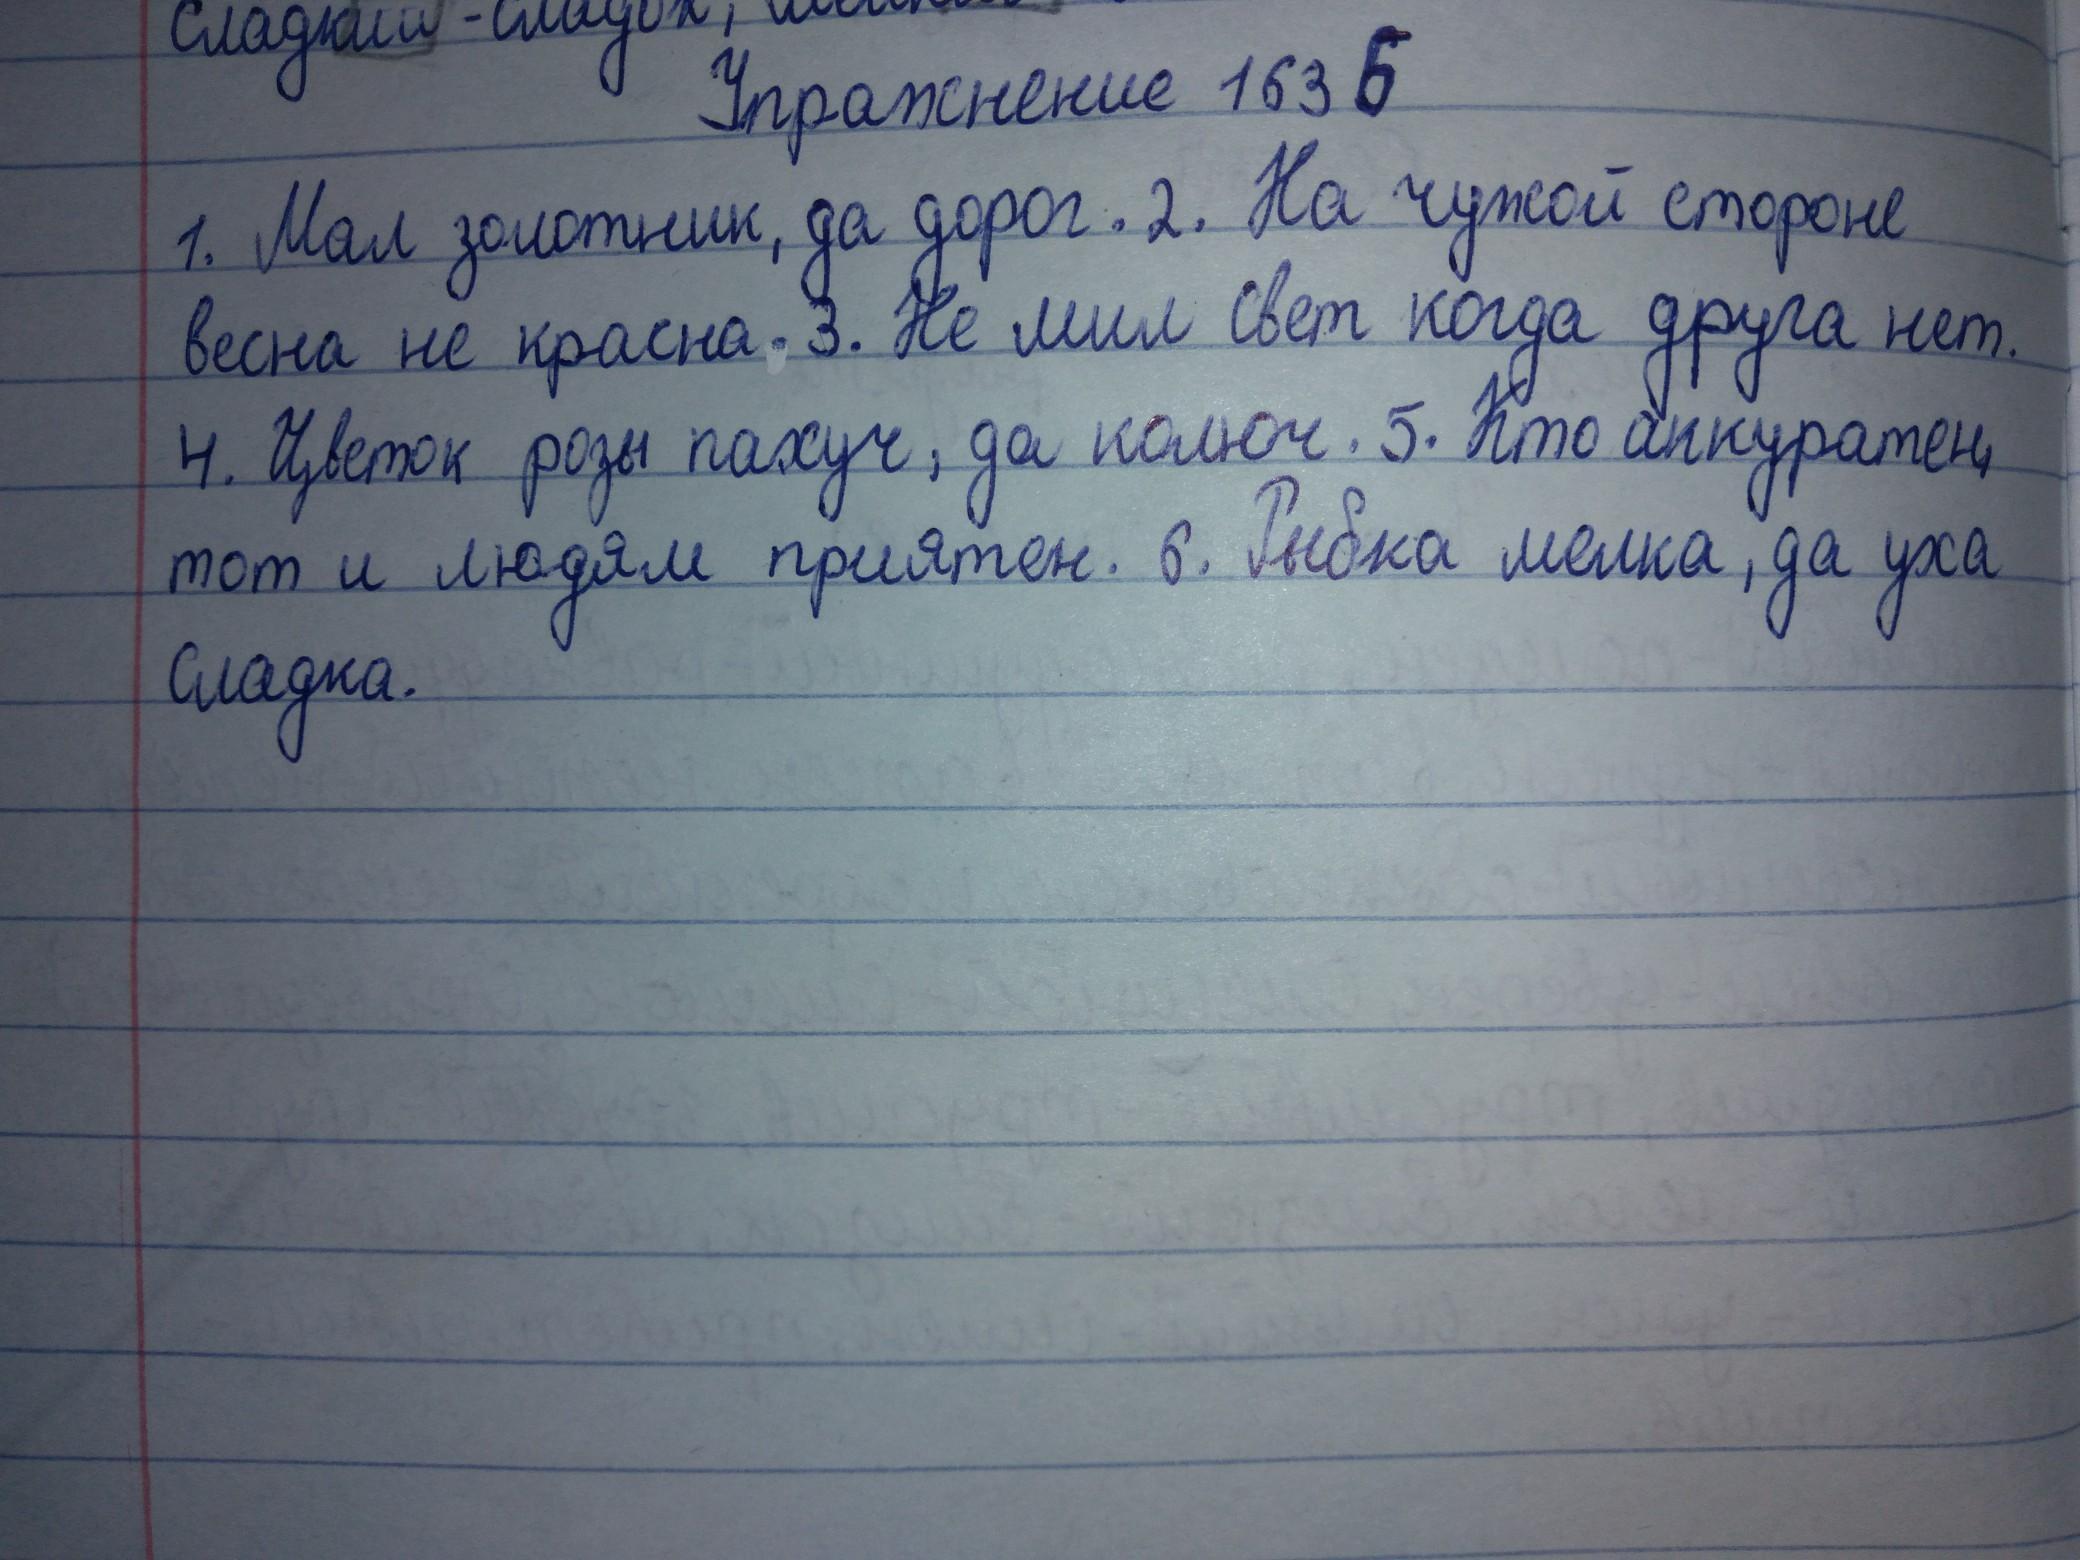 сладкий - сладок,
Упражнение 163 Б
1. Мал золотник, да дорог. 2. На чужой стороне
весна не красна. 3. Не мил свет когда друга нет.
4. Цветок розы пахуч, да колюч. 5. Кто аккуратен,
тот и людям приятен. 6. Рыбка мелка, да уха
сладка.